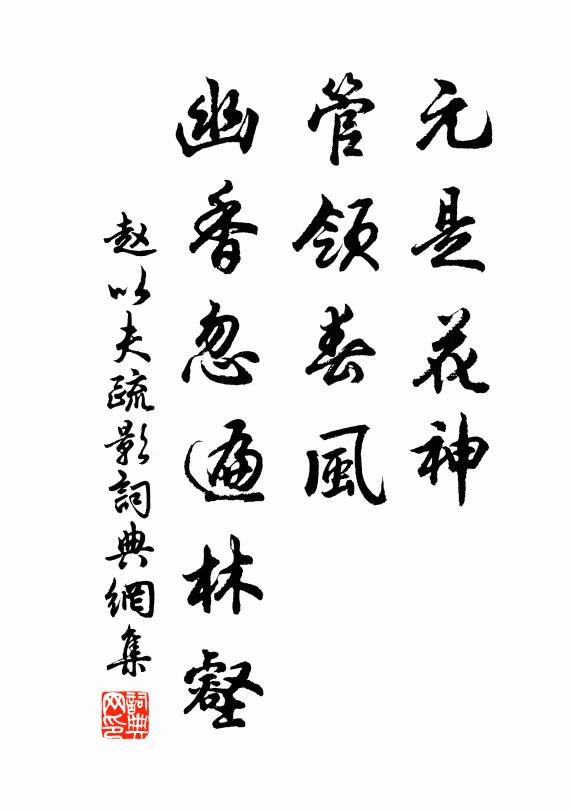 元是花神
管領春風
幽香忽遍林壑
赵以夫疏影詞典網集
詞典網印